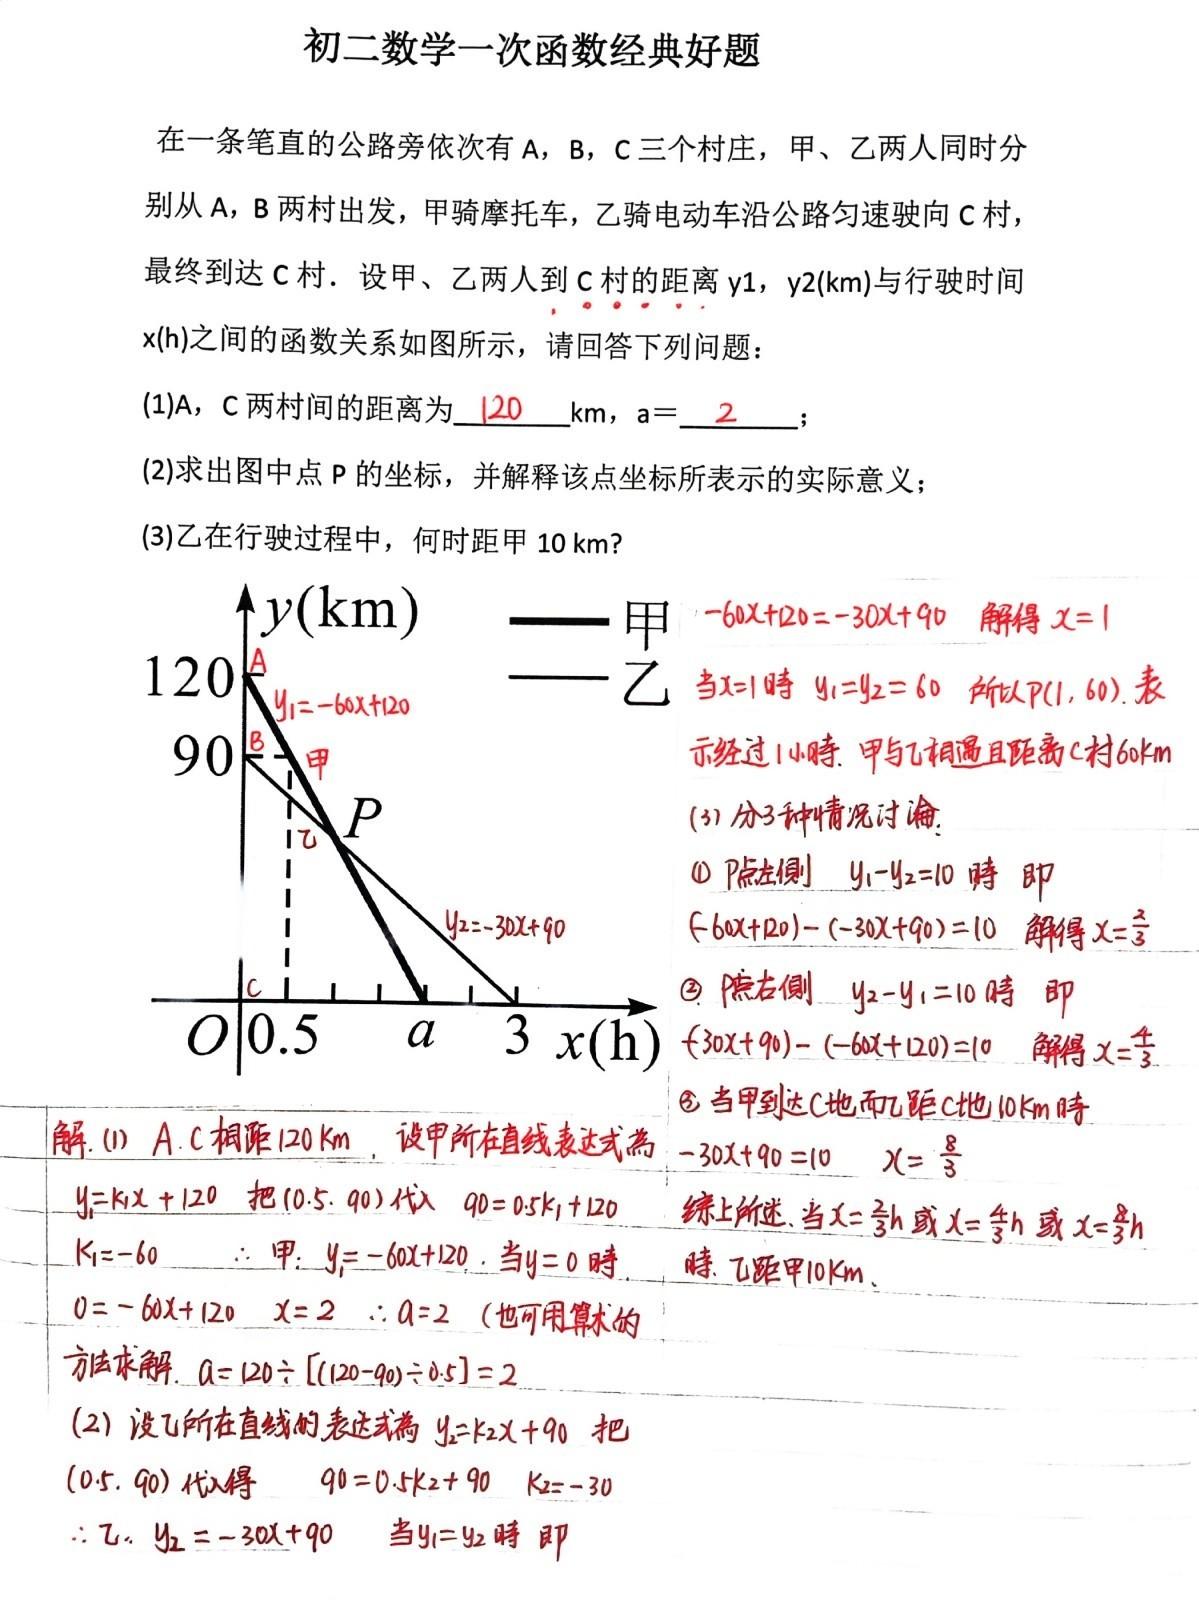 初二数学一次函数经典好题
在一条笔直的公路旁依次有 A，B，C 三个村庄，甲、乙两人同时分
别从 A，B 两村出发，甲骑摩托车，乙骑电动车沿公路匀速驶向 C 村，
最终到达 C 村．设甲、乙两人到 C 村的距离 y1，y2(km)与行驶时间
x(h)之间的函数关系如图所示，请回答下列问题：
(1)A，C 两村间的距离为 120 km，a＝ 2 ；
(2)求出图中点 P 的坐标，并解释该点坐标所表示的实际意义；
(3)乙在行驶过程中，何时距甲 10 km?
y(km)
甲
乙
120
A
y₁=-60x+120
90
B
甲
P
乙
y₂=-30x+90
C
O
0.5
a
3
x(h)
解.(1) A.C相距120Km . 设甲所在直线表达式為
y₁=K₁x+120 把(0.5.90)代入 90=0.5K₁+120
K₁=-60 ∴甲: y₁=-60x+120 . 当y=0時.
0=-60x+120 x=2 ∴a=2 (也可用算术的
方法求解. a=120÷[(120-90)÷0.5]=2
(2) 设乙所在直线的表达式為 y₂=K₂x+90 把
(0.5.90)代入得 90=0.5K₂+90 K₂=-30
∴乙. y₂=-30x+90 当y₁=y₂時 即
-60x+120=-30x+90 解得 x=1
当x=1時 y₁=y₂=60 所以P(1,60). 表
示经过1小時. 甲与乙相遇且距离C村60Km
(3) 分3种情况讨论.
① P点左側 y₁-y₂=10 時 即
(-60x+120)-(-30x+90)=10 解得 x=2/3
② P点右側 y₂-y₁=10時 即
(-30x+90)-(-60x+120)=10 解得 x=4/3
③ 当甲到达C地而乙距C地10Km時
-30x+90=10 x=8/3
综上所述、当x=2/3h或x=4/3h或x=8/3h
時. 乙距甲10Km、